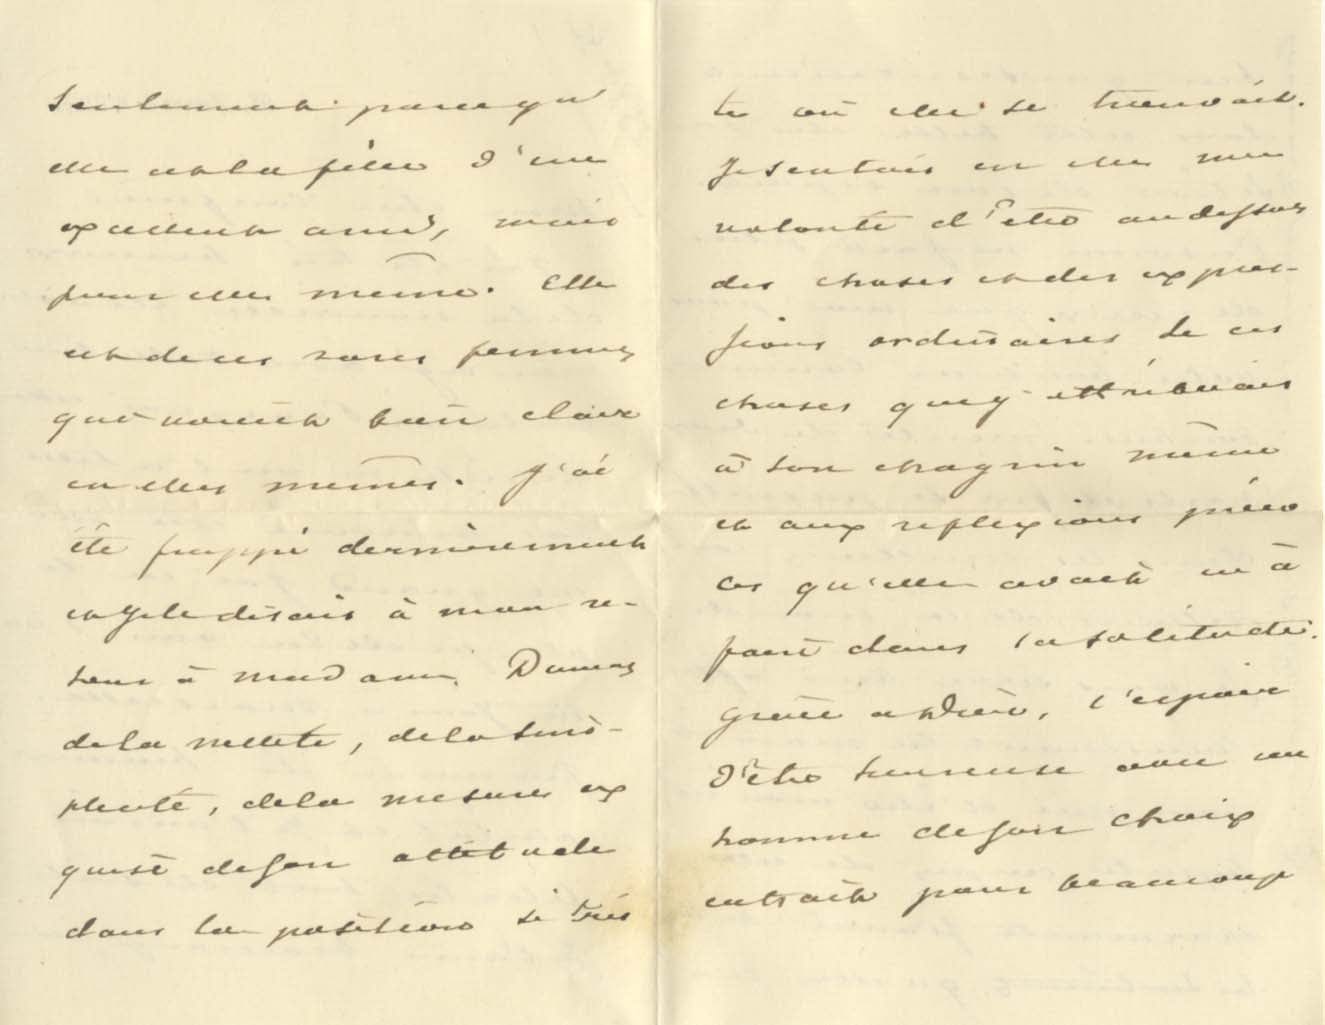 seulement parcequ'
elle est la fille d'une
excellente amie, mais
pour elle même. Elle
est de ces rares femmes
qui voient bien clair
en elles mêmes. J'ai
été frappé dernièrement
et je le disais à mon re-
tour à madame Dumas
de la netteté, de la sim-
plicité, de la mesure ex
quise de son attitude
dans la position si tris
te où elle se trouvait.
Je sentais en elle une
volonté d'être audessus
des choses et des expres-
sions ordinaires de ces
choses que j'attribuais
à son chagrin même
et aux reflexions préco
ces qu'elle avait eu à
faire dans la solitude.
Grâce à Dieu, l'espoir
d'être heureuse avec un
homme de son choix
entrait pour beaucoup